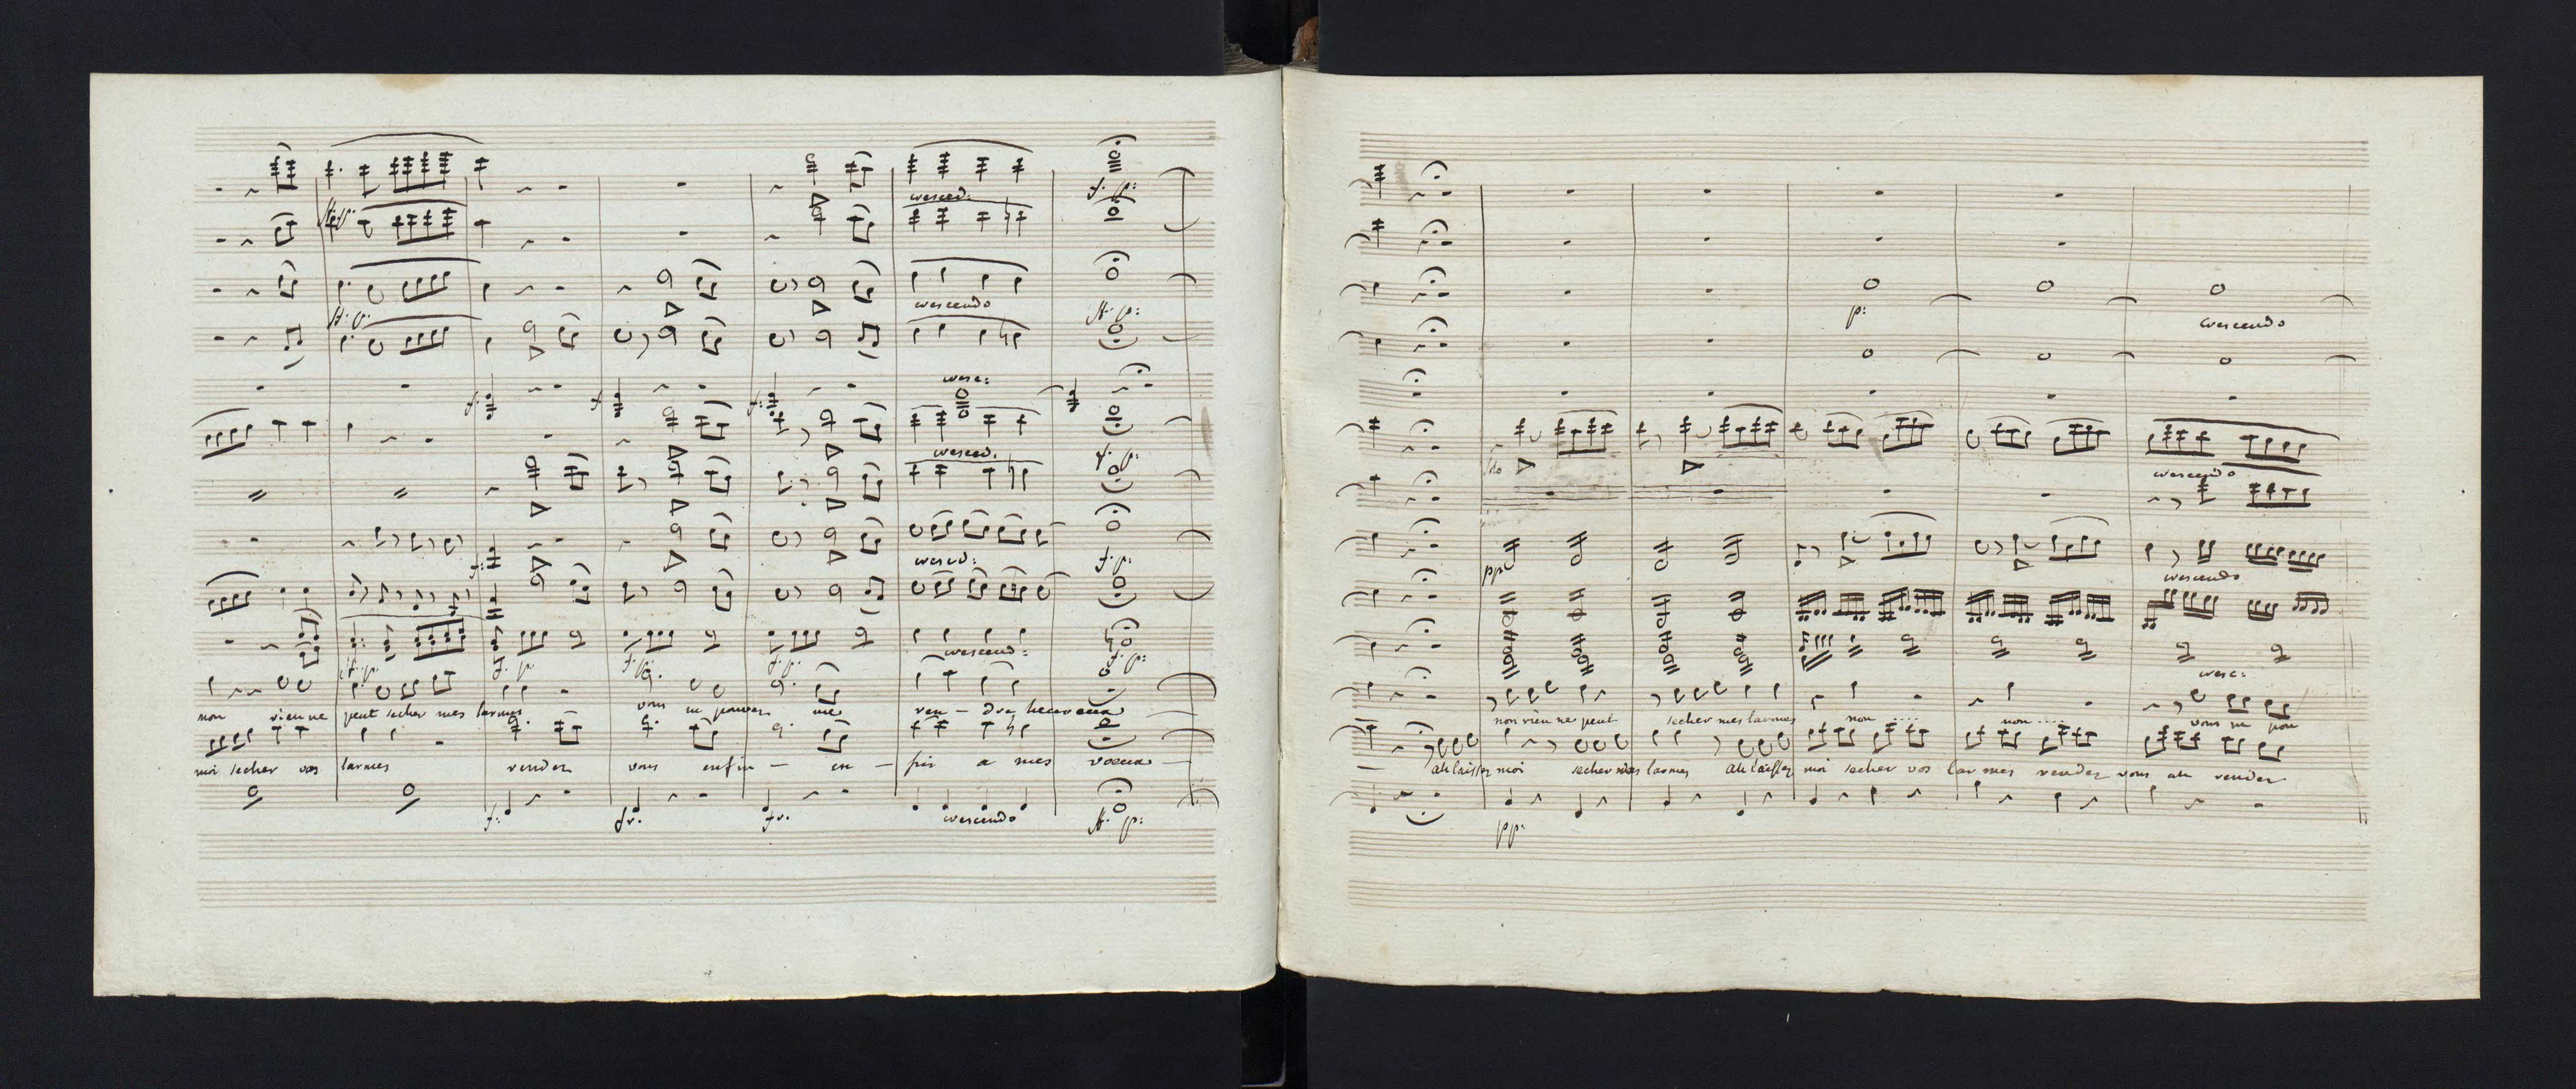 cresced:
f. p:
ff. p.
crescendo
ff. p:
ff. p.
cresc:
f. f. f:
cresced.
f. p:
cresced:
f. p:
f:
crescend:
ff. p. f. p. f. p. f. p. f. p:
non rien ne peut secher mes larmes vous ne pouvez me ren - dre heureux
moi secher vos larmes rendez vous enfin - en - fin a mes voeux
f: fr. fr. crescendo ff. p:
p: crescendo
crescendo
pp
crescendo
cresc:
non rien ne peut secher mes larmes non .... non .... vous ne pou
ah laissez moi secher vos larmes ah laissez moi secher vos lar mes rendez vous ah rendez
pp: